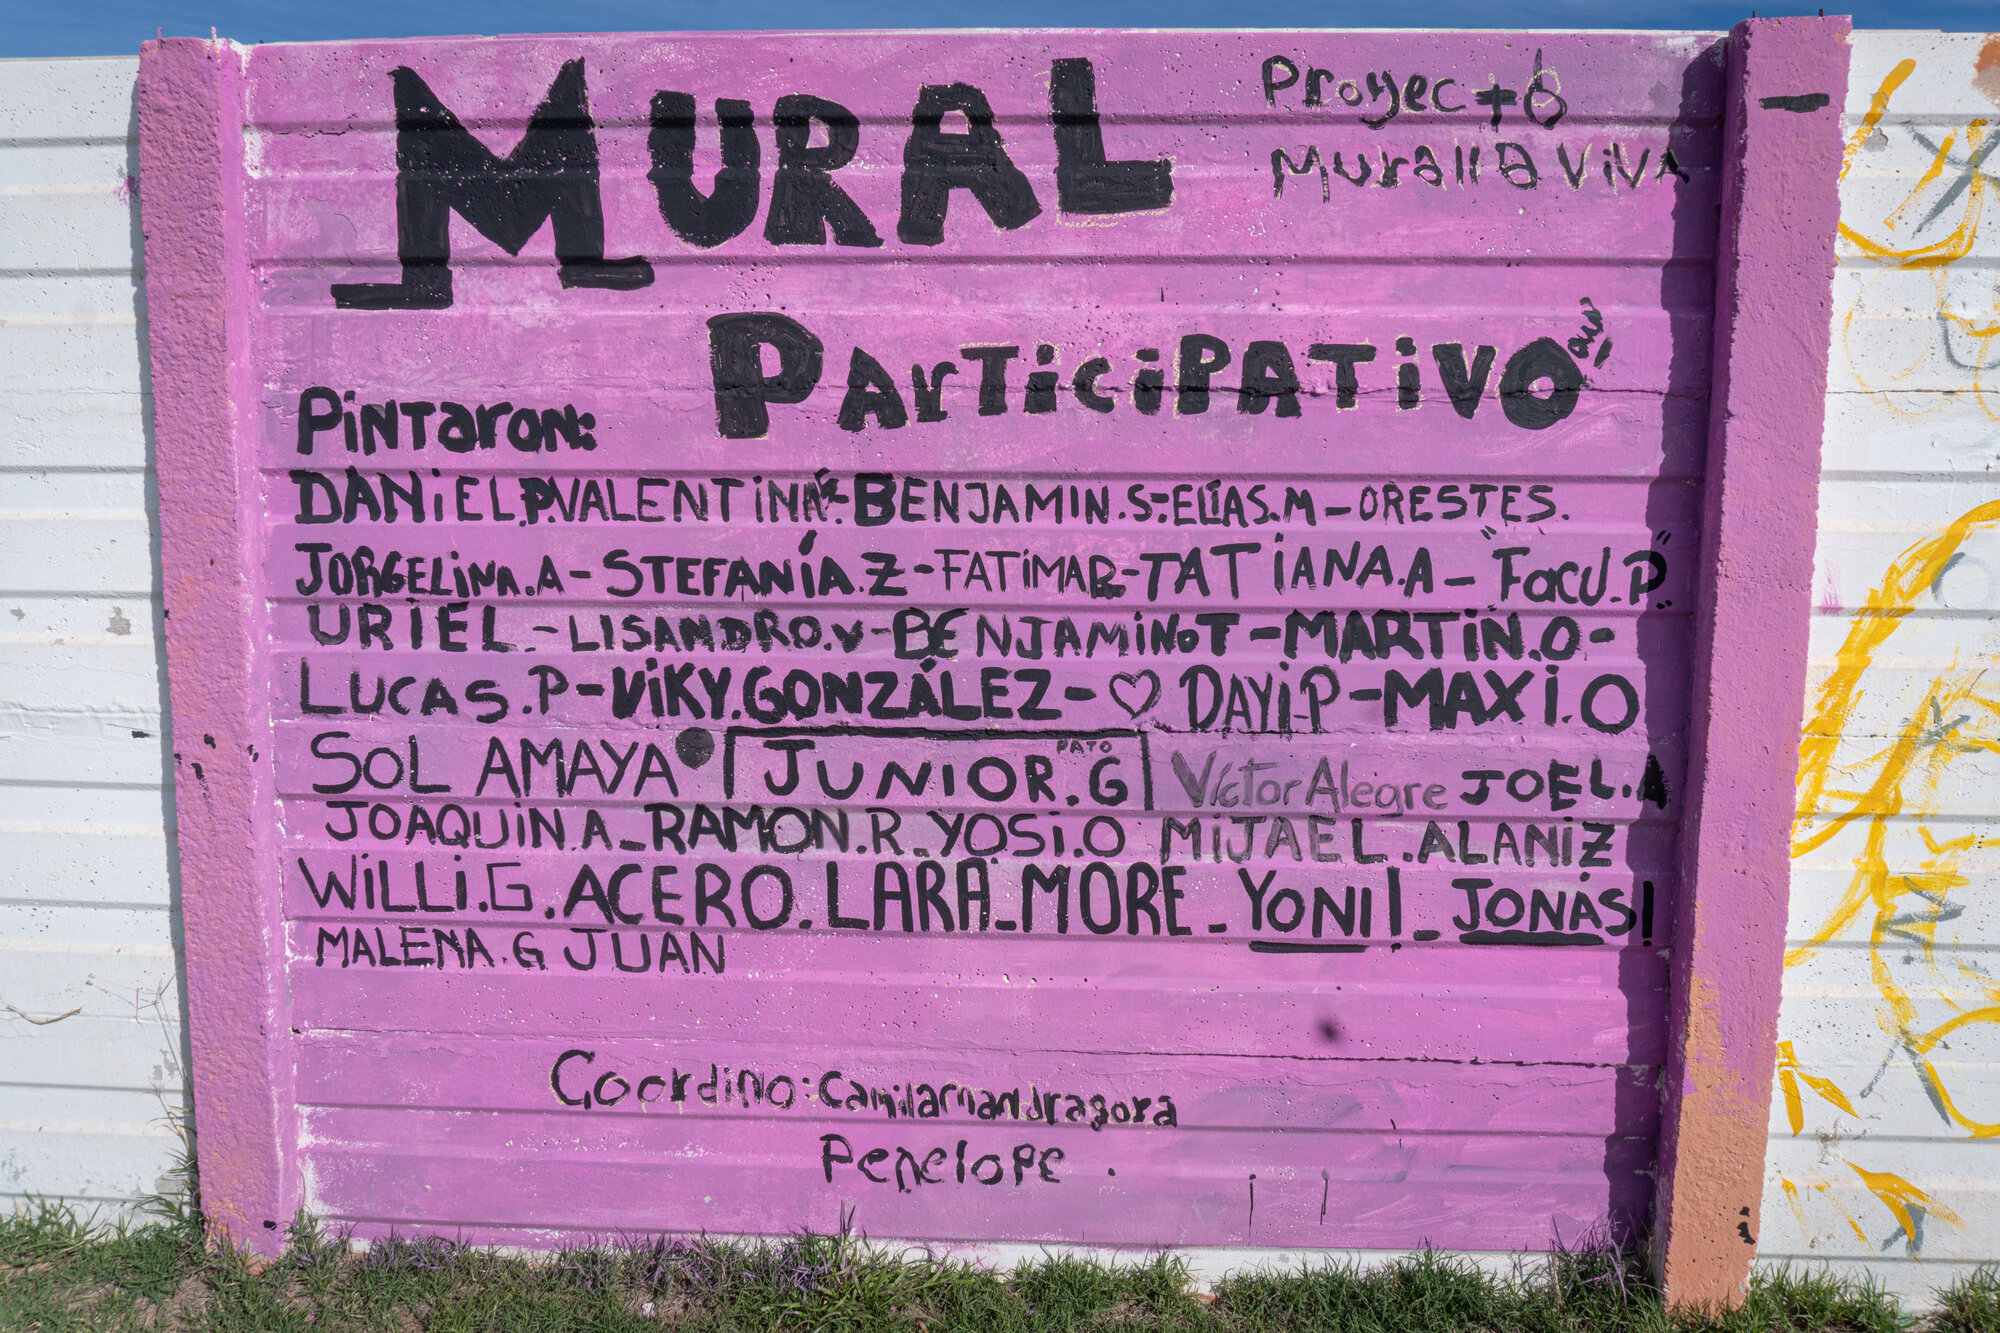 MURAL
Proyecto
Muralla ViVA
ParTiciPATiVO
PiNTaroN:
DANiEL.P.VALENTiNA F-BENJAMIN.S-ELÍAS.M-ORESTES.
JORGELiNA.A-STEFANÍA.Z-FATiMA B-TATIANA.A-"FACU.P"
URIEL.-LISANDRO.V-BENJAMiN T-MARTiN.O-
LUCAS.P-ViKY.GONZÁLEZ-♡ DAYi.P-MAXI.O
SOL AMAYA JUNIOR.G PATO Víctor Alegre JOEL.A
JOAQUiN.A-RAMON.R-YOSi.O MiJAEL.ALANiZ
WiLLi.G.ACERO.LARA-MORE-YONI!-JONAS!
MALENA.G JUAN
Coordino:Camilamandragora
Penelope.